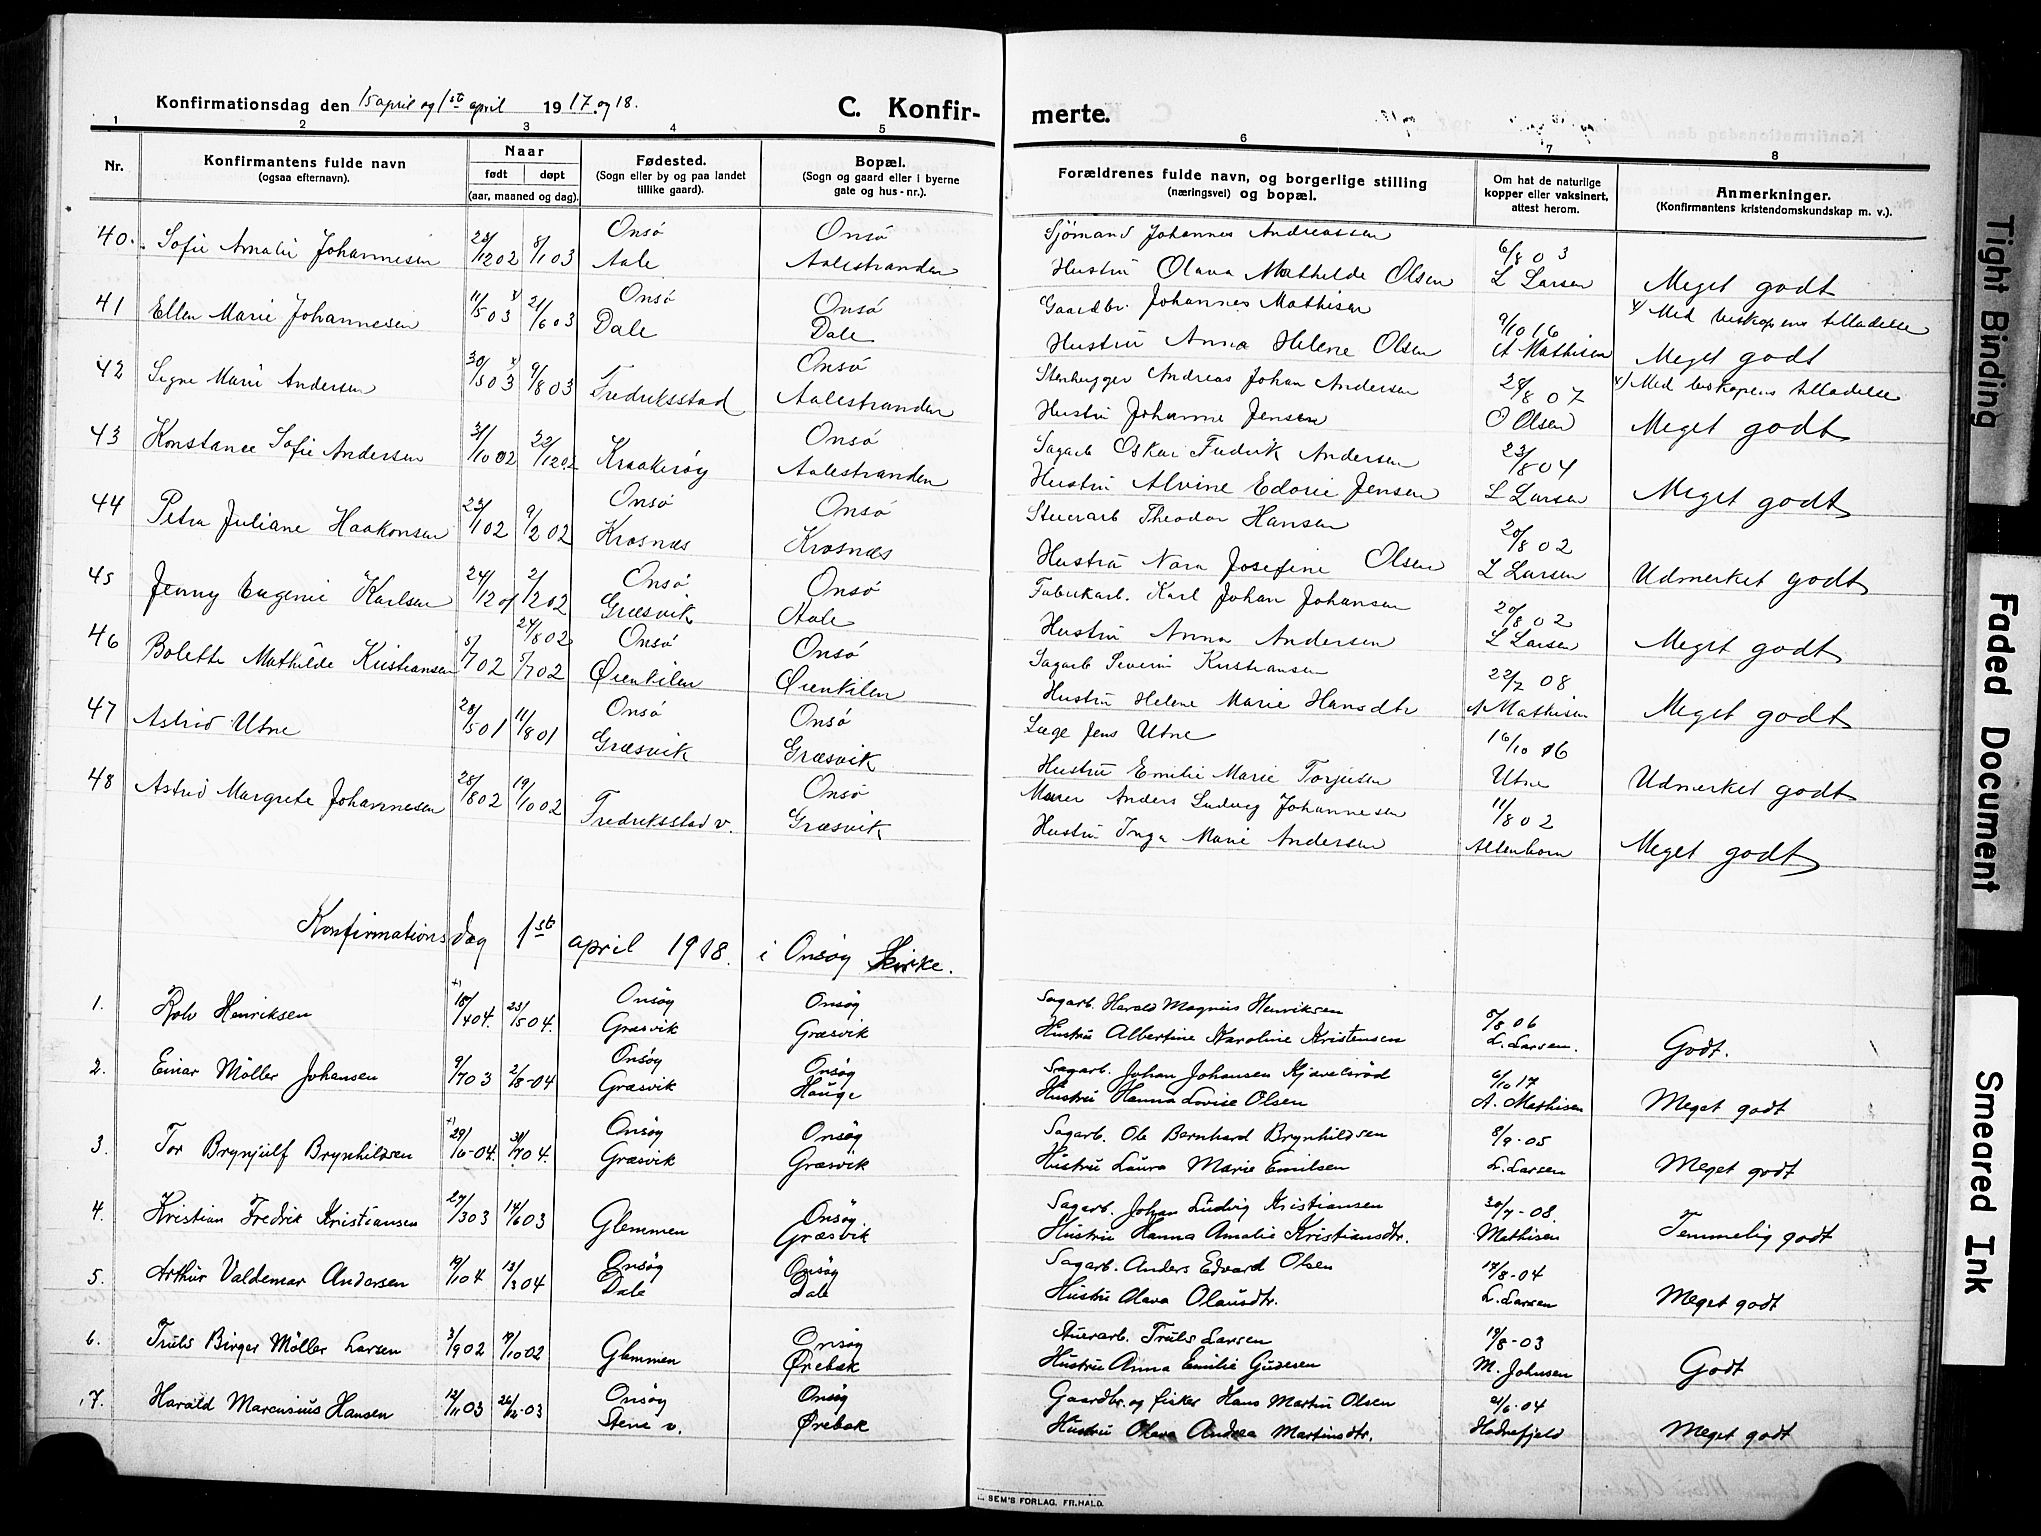 Konfirmationsdag den 15 april og 1st april 1917. og 18.
C. Konfir-
merte.
1 2 3 4 5 6 7 8
Nr.
Konfirmantens fulde navn
(ogsaa efternavn).
Naar
født døpt
(aar, maaned og dag).
Fødested.
(Sogn eller by og paa landet
tillike gaard).
Bopæl.
(Sogn og gaard eller i byerne
gate og hus-nr.).
Forældrenes fulde navn, og borgerlige stilling
(næringsvei) og bopæl.
Om hat de naturlige
kopper eller vaksinert,
attest herom.
Anmerkninger.
(Konfirmantens kristendomskundskap m. v.).
40. Sofie Amalie Johannesen 28/12 02 8/1 03 Onsø Aale Onsø Aalestranden
Sjømand Johannes Andreassen 6/8 03
Hustru Olava Mathilde Olsen L Larsen Meget godt
41 Ellen Marie Johannesen 11/5 03 x) 21/6 03 Onsø Dale Onsø Dale
Gaardbr. Johannes Mathisen 9/10 16 x) Med biskopens tilladelse
Hustru Anna Helene Olsen A Mathisen Meget godt
42 Signe Marie Andersen 30/5 03 x) 9/8 03 Fredriksstad Onsø Aalestranden
Stenhugger Andreas Johan Andersen 28/8 07 x) Med biskopens tilladelse
Hustru Johanne Jensen O Olsen Meget godt
43 Konstance Sofie Andersen 31/10 02 22/12 02 Kraakerøy Onsø Aalestranden
Sagarb Oskar Fredrik Andersen 23/8 04
Hustru Alvine Edorie Jensen L Larsen Meget godt
44 Petra Juliane Haakonsen 23/1 02 9/2 02 Onsø Krosnæs Onsø Krosnæs
Stuerarb Theodor Hansen 20/8 02
Hustru Nora Josefine Olsen L Larsen Udmerket godt
45 Jenny Eugenie Karlsen 24/12 01 2/2 02 Onsø Græsvik Onsø Aale
Fabrikarb. Karl Johan Johansen 20/8 02
Hustru Anna Andersen L Larsen Meget godt
46 Bolette Mathilde Kristiansen 5/7 02 24/8 02 5/7 02 Onsø Ørenkilen Onsø Ørenkilen
Sagarb Severin Kristiansen 22/7 08
Hustru Helene Marie Hansdtr A Mathisen Meget godt
47 Astrid Utne 28/5 01 11/8 01 Onsø Græsvik Onsø Græsvik
Læge Jens Utne 16/10 16
Hustru Emilie Marie Torjusen Utne Udmerket godt
48 Astrid Margrete Johannesen 28/8 02 19/10 02 Fredriksstad v. Onsø Græsvik
Murer Anders Ludvig Johannesen 11/8 02
Hustru Inga Marie Andersen Altenborn Meget godt
Konfirmations dag 1st april 1918. i Onsøy Kirke.
1. Rolv Henriksen +) 18/4 04. 23/5 04. Onsøy Græsvik Onsøy Græsvik
Sagarb. Harald Magnus Henriksen 5/8 06
Hustru Albertine Karoline Kristensen L. Larsen. Godt.
2. Einar Möller Johansen 9/7 03 2/8-04 Onsøy Græsvik Onsøy Hauge
Sagarb. Johan Johansen Kjævelsrød 6/10 17
Hustru Hanna Lovise Olsen A. Mathisen Meget godt
3. Tor Brynjulf Brynhildsen +) 29/6-04. 31/7 04. Onsøy Græsvik Onsøy Græsvik
Sagarb. Ole Bernhard Brynhildsen 8/9-05
Hustru Laura Marie Emilsen L. Larsen Meget godt
4. Kristian Fredrik Kristiansen 27/3 03 14/6 03 Glemmen Onsøy. Græsvik
Sagarb. Johan Ludvig Kristiansen 30/7-08.
Hustru Hanna Amalie Kristiansdtr. Mathisen Temmelig godt
5. Arthur Valdemar Andersen 19/1 04 13/3 04 Onsøy Dale Onsøy Dale
Sagarb. Anders Edvard Olsen 17/8-04
Hustru Olava Olausdtr. L. Larsen Meget godt
6. Truls Birger Möller Larsen 3/9 02 19/10 02 Glemmen Onsøy Ørebæk
Stuerarb. Truls Larsen 19/8-03
Hustru Anna Emilie Gudesen M. Johnsen Godt
7. Harald Marcusius Hansen 12/11 03 26/12-03 Onsøy Stene v. Onsøy Ørebæk
Gaardbr. og fisker Hans Martin Olsen 21/6-04
Hustru Olava Andrea Martinsdtr. Hodnefjeld Meget godt
SEM'S FORLAG. FR.HALD.
Tight Binding
Faded Document
Smeared Ink